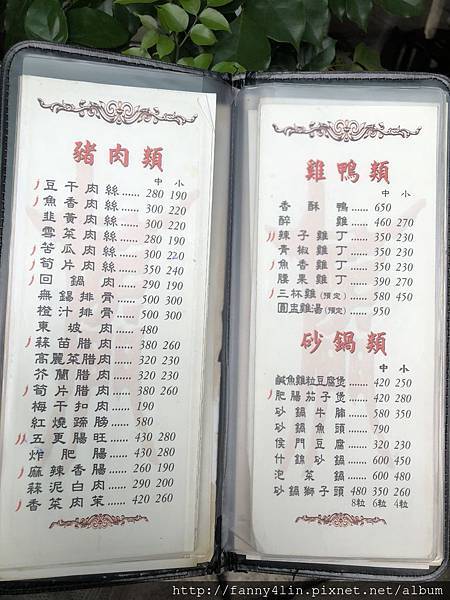 豬肉類
中 小
豆干肉絲...... 280 190
魚香肉絲...... 300 220
韭黃肉絲...... 300 220
雪菜肉絲...... 280 190
苦瓜肉絲...... 300 220
筍片肉絲...... 350 240
回鍋肉...... 290 190
無錫排骨...... 500 300
橙汁排骨...... 500 300
東坡肉...... 480
蒜苗腊肉...... 380 260
高麗菜腊肉...... 320 230
芥蘭腊肉...... 320 230
筍片腊肉...... 380 260
梅干扣肉...... 190
紅燒蹄膀...... 580
五更腸旺...... 430 280
炸肥腸...... 430 280
麻辣香腸...... 260 190
蒜泥白肉...... 290 200
香菜肉末...... 420 260
雞鴨類
中 小
香酥鴨...... 650
醉雞...... 460 270
辣子雞丁...... 350 230
青椒雞丁...... 350 230
魚香雞丁...... 350 230
腰果雞丁...... 390 270
三杯雞(預定)...... 580 450
圓盅雞湯(預定)...... 950
砂鍋類
中 小
鹹魚雞粒豆腐煲...... 420 250
肥腸茄子煲...... 420 280
砂鍋牛腩...... 580 350
砂鍋魚頭...... 790
侯門豆腐...... 320 230
什錦砂鍋...... 600 450
泡菜鍋...... 600 480
砂鍋獅子頭 480 350 260
8粒 6粒 4粒
http://fanny4lin.pixnet.net/album